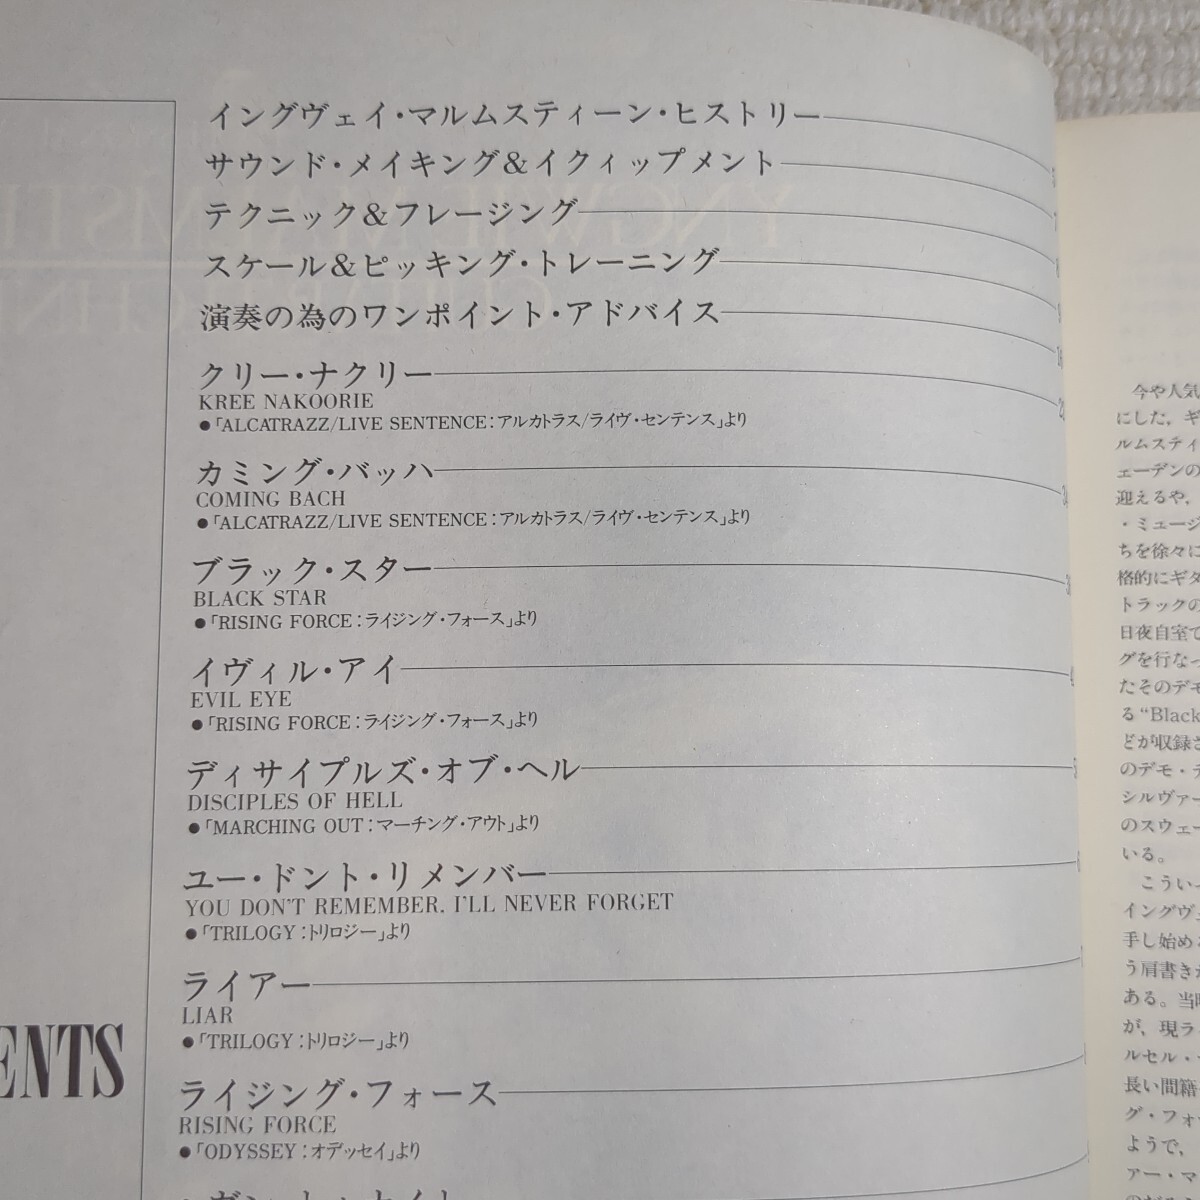 イングヴェイ・マルムスティーン・ヒストリー
サウンド・メイキング&イクィップメント
テクニック&フレージング
スケール&ピッキング・トレーニング
演奏の為のワンポイント・アドバイス
クリー・ナクリー
KREE NAKOORIE
●「ALCATRAZZ/LIVE SENTENCE:アルカトラス/ライヴ・センテンス」より
カミング・バッハ
COMING BACH
●「ALCATRAZZ/LIVE SENTENCE:アルカトラス/ライヴ・センテンス」より
ブラック・スター
BLACK STAR
●「RISING FORCE:ライジング・フォース」より
イヴィル・アイ
EVIL EYE
●「RISING FORCE:ライジング・フォース」より
ディサイプルズ・オブ・ヘル
DISCIPLES OF HELL
●「MARCHING OUT:マーチング・アウト」より
ユー・ドント・リメンバー
YOU DON'T REMEMBER. I'LL NEVER FORGET
●「TRILOGY:トリロジー」より
ライアー
LIAR
●「TRILOGY:トリロジー」より
ライジング・フォース
RISING FORCE
●「ODYSSEY:オデッセイ」より
ENTS
今や人気
にした，ギ
ルムスティ
ェーデンの
迎えるや，
・ミュージ
ちを徐々に
格的にギタ
トラックの
日夜自室で
グを行なっ
たそのデモ
る“Black
どが収録さ
のデモ・テ
シルヴァー
のスウェー
いる。
こうい
イングヴェ
手し始め
う肩書きが
ある。当時
が，現ラ
ルセル・
長い間籍
グ・フォ
ようで，
ァー・マ